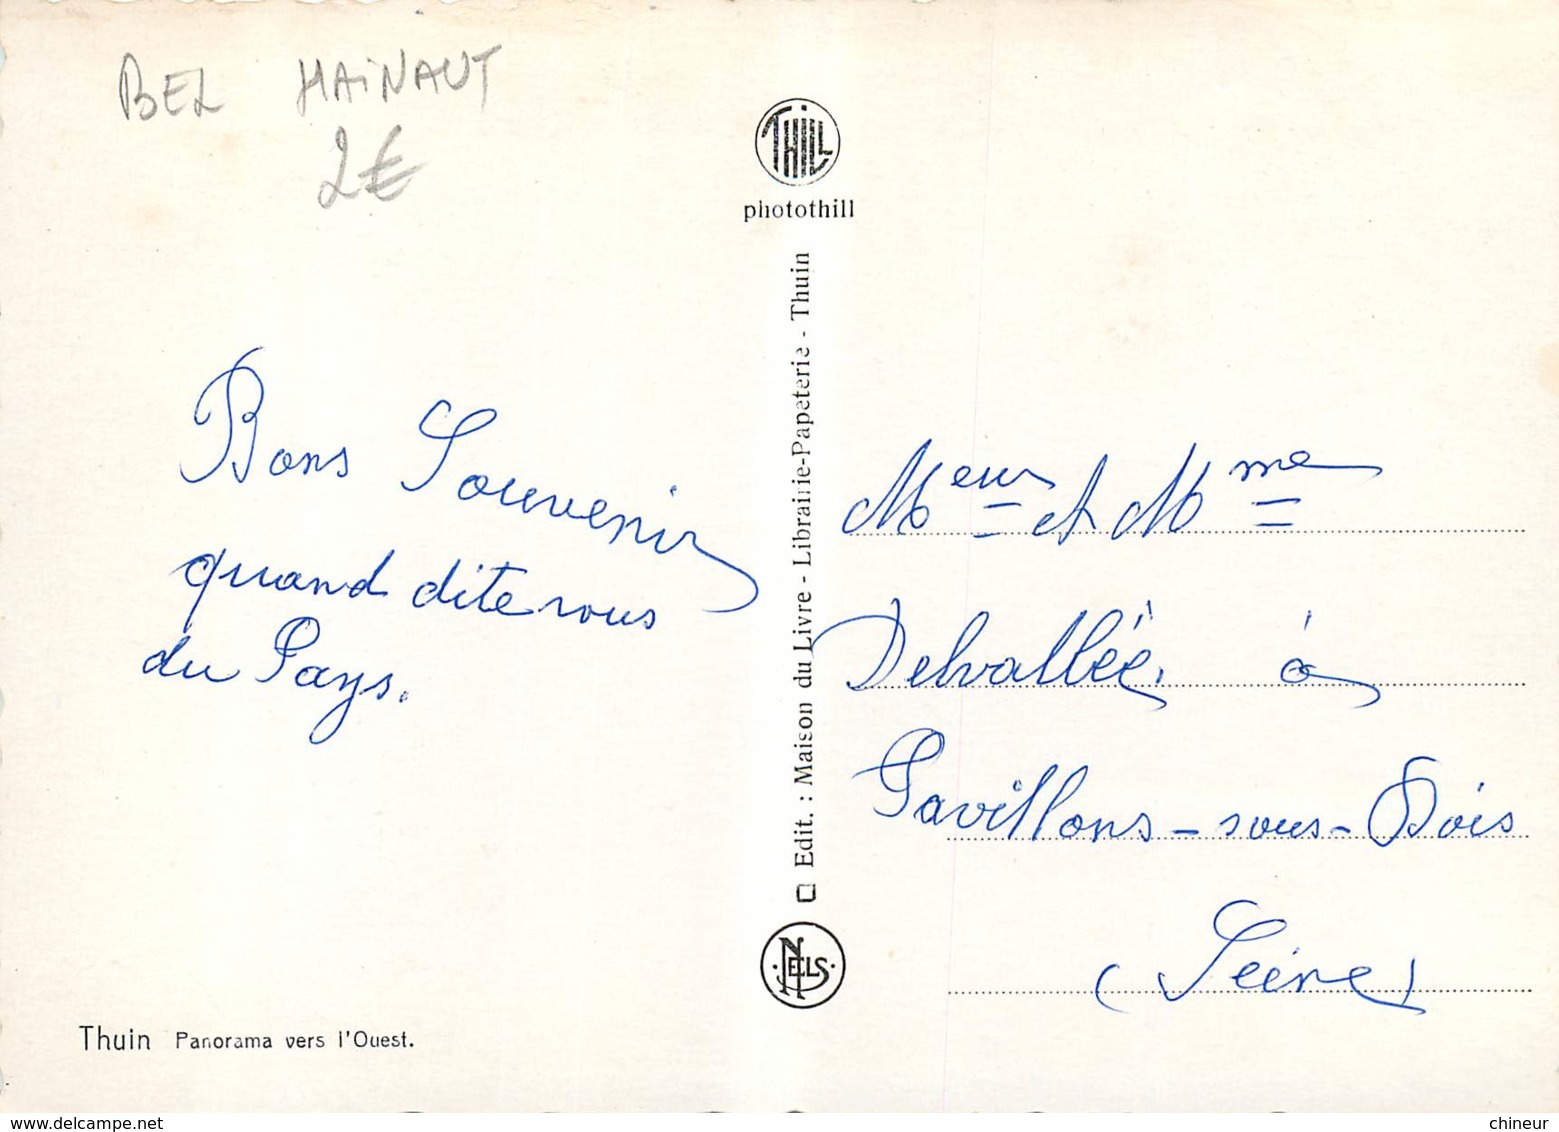 BEL HAINAUT
2€
THILL
photothill
Bons Souvenir
quand dite vous
du Pays.
Edit. : Maison du Livre - Librairie-Papeterie - Thuin
NELS
Meur et Mme
Delvallée à
Pavillons-sous-Bois
(Seine)
Thuin Panorama vers l'Ouest.
www.delcampe.net
chineur